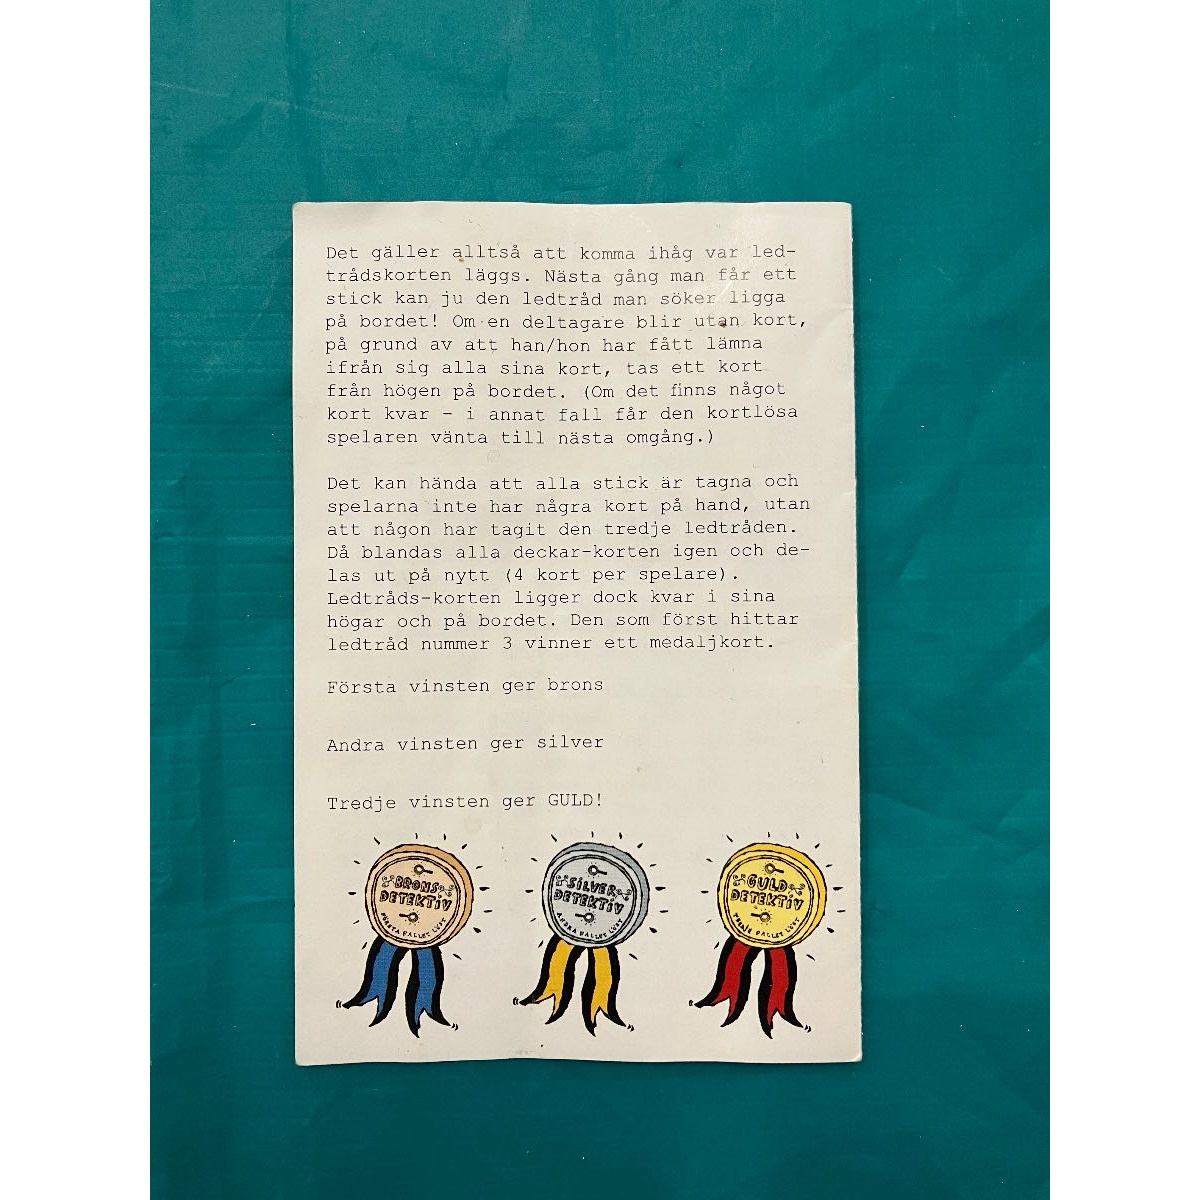 Det gäller alltså att komma ihåg var led-
trådskorten läggs. Nästa gång man får ett
stick kan ju den ledtråd man söker ligga
på bordet! Om en deltagare blir utan kort,
på grund av att han/hon har fått lämna
ifrån sig alla sina kort, tas ett kort
från högen på bordet. (Om det finns något
kort kvar – i annat fall får den kortlösa
spelaren vänta till nästa omgång.)
Det kan hända att alla stick är tagna och
spelarna inte har några kort på hand, utan
att någon har tagit den tredje ledtråden.
Då blandas alla deckar-korten igen och de-
las ut på nytt (4 kort per spelare).
Ledtråds-korten ligger dock kvar i sina
högar och på bordet. Den som först hittar
ledtråd nummer 3 vinner ett medaljkort.
Första vinsten ger brons
Andra vinsten ger silver
Tredje vinsten ger GULD!
BRONS
DETEKTIV
FÖRSTA FALLET LÖST
SILVER
DETEKTIV
ANDRA FALLET LÖST
GULD
DETEKTIV
TREDJE FALLET LÖST